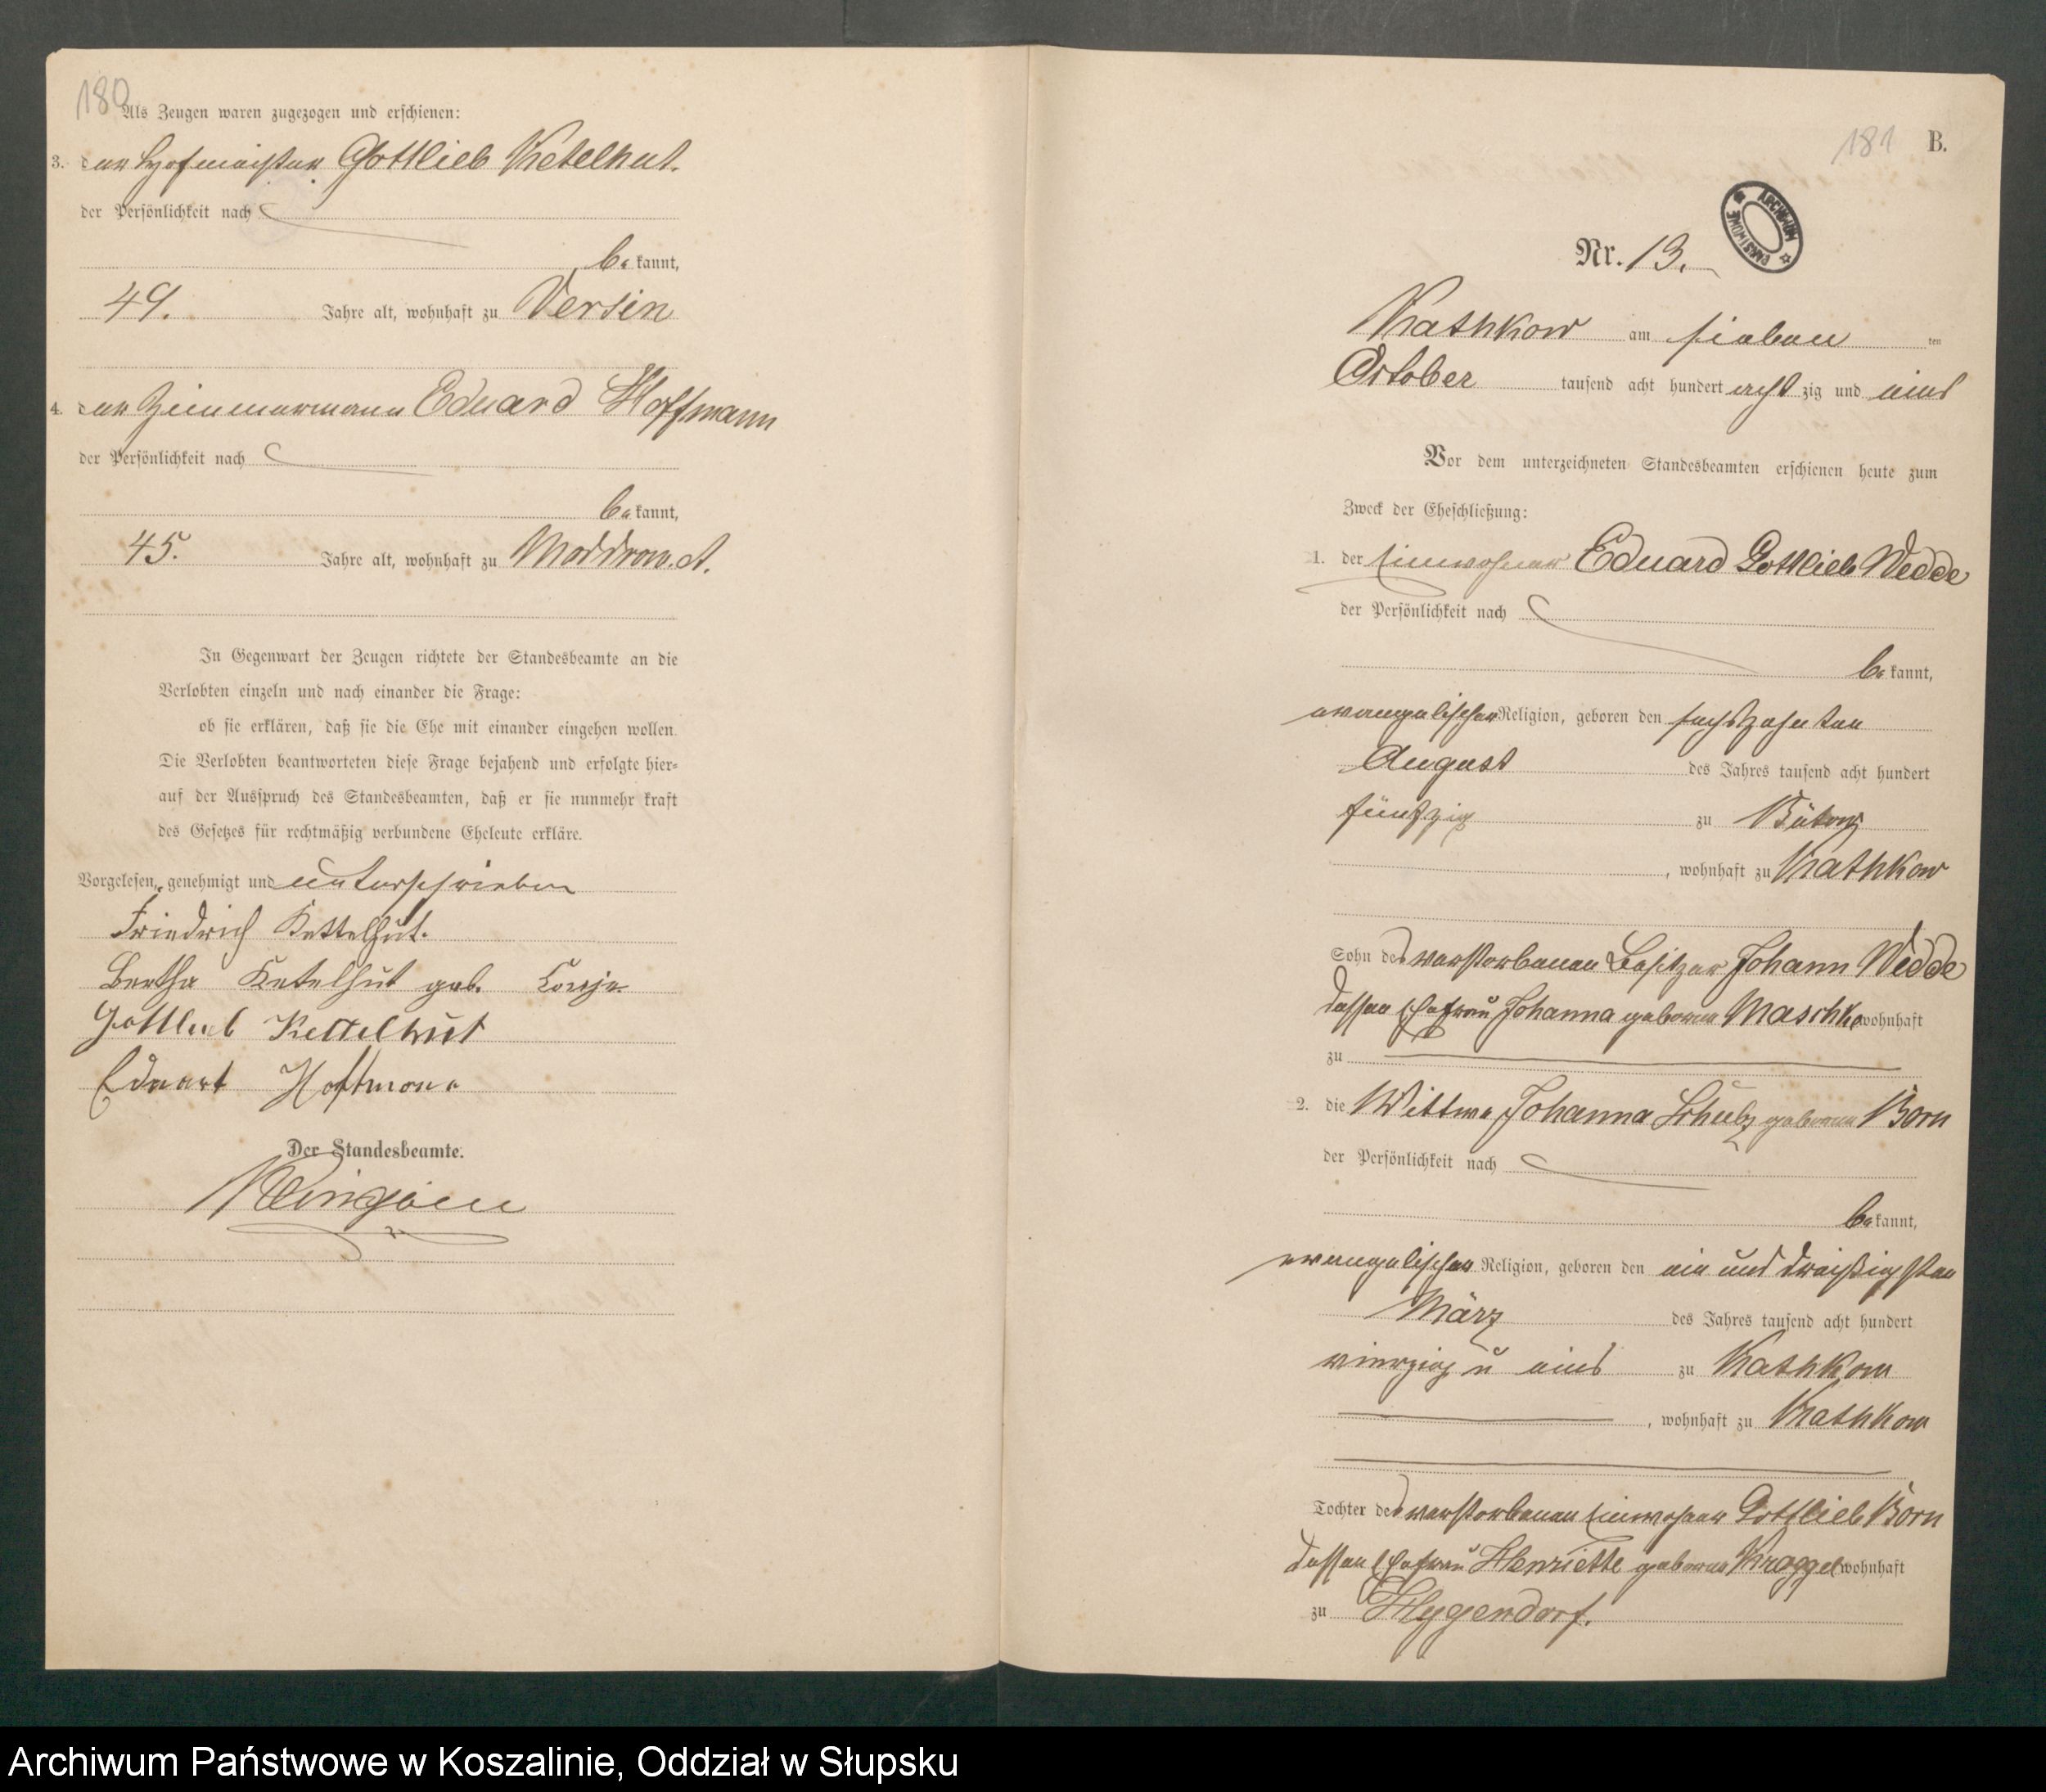 180
Als Zeugen waren zugezogen und erschienen:
3. der Hofmeister Gottlieb Ketelhut.
der Persönlichkeit nach
bekannt,
49. Jahre alt, wohnhaft zu Versin
4. der Zimmermann Eduard Hoffmann
der Persönlichkeit nach
bekannt,
45. Jahre alt, wohnhaft zu Moddrow. A.
In Gegenwart der Zeugen richtete der Standesbeamte an die
Verlobten einzeln und nach einander die Frage:
ob sie erklären, daß sie die Ehe mit einander eingehen wollen.
Die Verlobten beantworteten diese Frage bejahend und erfolgte hier-
auf der Ausspruch des Standesbeamten, daß er sie nunmehr kraft
des Gesetzes für rechtmäßig verbundene Eheleute erkläre.
Vorgelesen, genehmigt und unterschrieben
Friedrich Kettelhut.
Bertha Ketelhut geb.
Gottlieb Kettelhut
Eduart Hoffmann
Der Standesbeamte.
181 B.
ARCHIWUM PAŃSTWOWE
Nr. 13.
Kathkow am sieben ten
October tausend acht hundert acht zig und eins
Vor dem unterzeichneten Standesbeamten erschienen heute zum
Zweck der Eheschließung:
1. der Einwohner Eduard Gottlieb Wedde
der Persönlichkeit nach
bekannt,
evangelischer Religion, geboren den sechszehnten
August des Jahres tausend acht hundert
fünfzig zu Bütow
, wohnhaft zu Kathkow
Sohn des verstorbenen Besitzer Johann Wedde
dessen Ehefrau Johanna geborene Maschke wohnhaft
zu
2. die Wittwe Johanna Schulz geborene Born
der Persönlichkeit nach
bekannt,
evangelischer Religion, geboren den ein und dreißigsten
März des Jahres tausend acht hundert
vierzig u eins zu Kathkow
, wohnhaft zu Kathkow
Tochter des verstorbenen Einwohner Gottlieb Born
dessen Ehefrau Henriette geborene Kroggel wohnhaft
zu Hygendorf.
Archiwum Państwowe w Koszalinie, Oddział w Słupsku